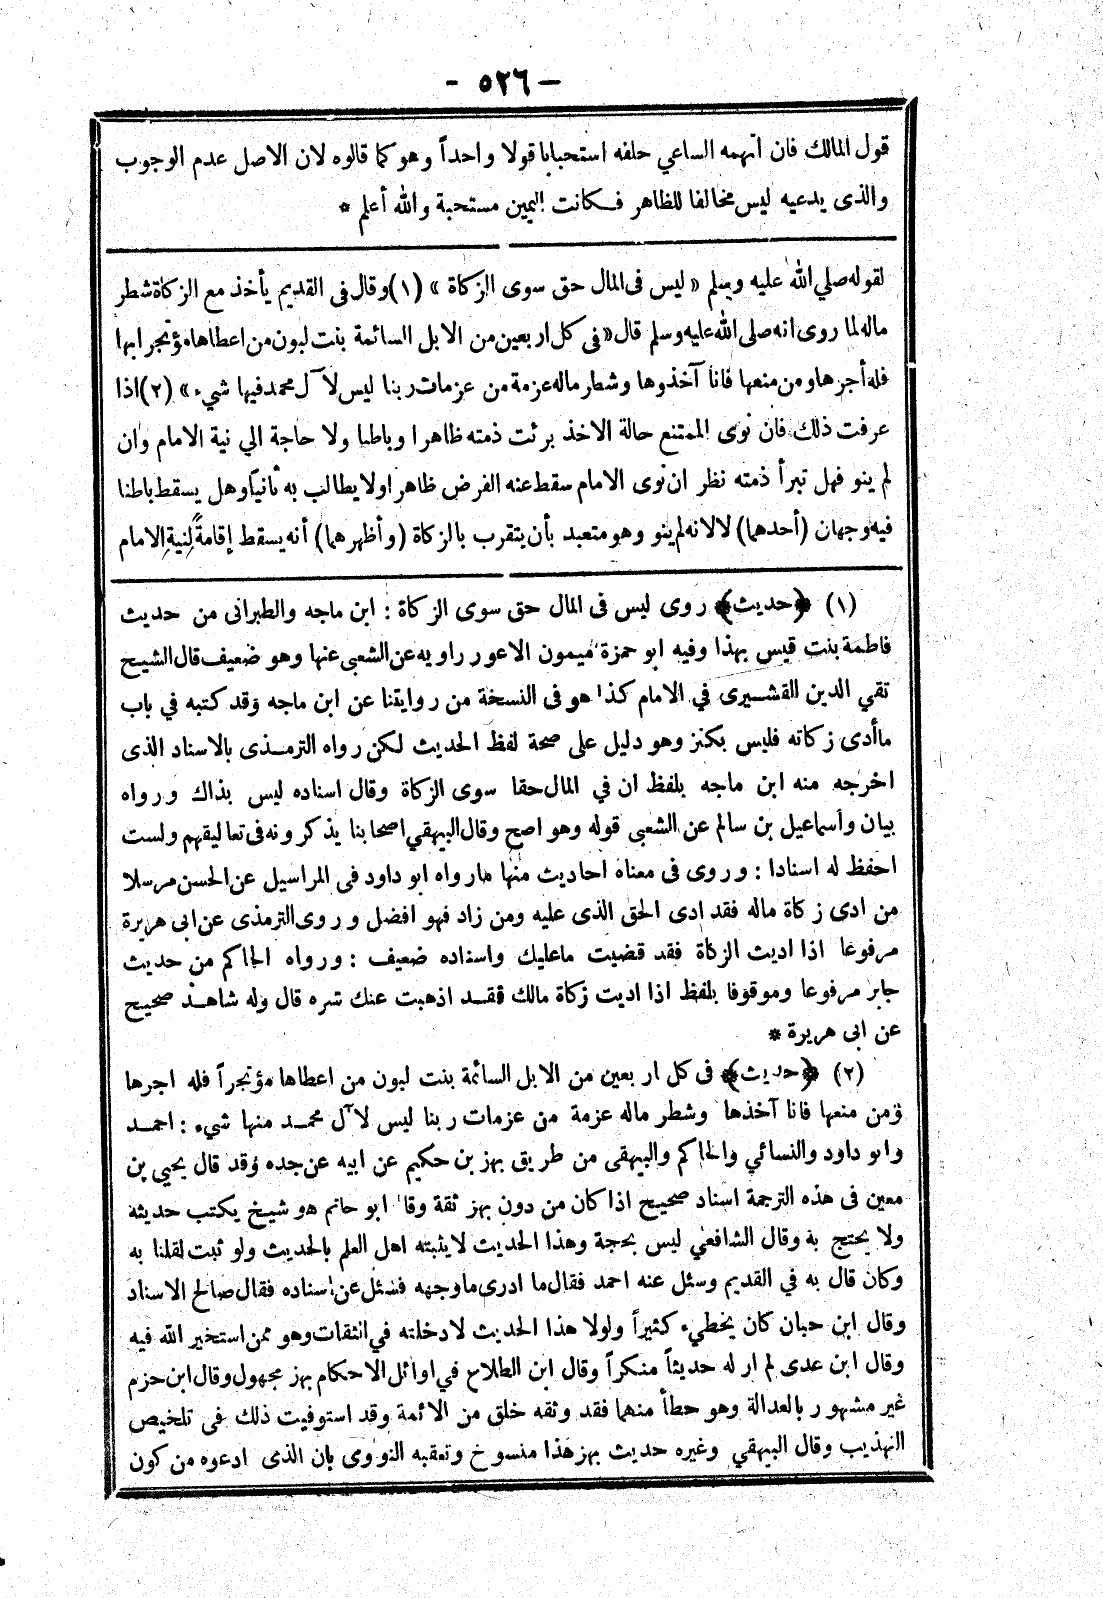 - ٥٢٦ -
قول المالك فان اتهمه الساعي حلفه استحبابا قولا واحداً وهو كما قالوه لان الاصل عدم الوجوب
والذى يدعيه ليس مخالفا للظاهر فكانت اليمين مستحبة والله أعلم *
لقوله صلي الله عليه وسلم « ليس فى المال حق سوى الزكاة » (١) وقال فى القديم يأخذ مع الزكاة شطر
ماله لما روى انه صلى الله عليه وسلم قال «فى كل اربعين من الابل السائمة بنت لبون من اعطاها مؤتجرا بها
فله أجرها ومن منعها فانا آخذوها وشطر ماله عزمة من عزمات ربنا ليس لآل محمد فيها شيء» (٢) اذا
عرفت ذلك فان نوى الممتنع حالة الاخذ برئت ذمته ظاهرا وباطبا ولا حاجة الي نية الامام وان
لم ينو فهل تبرأ ذمته نظر ان نوى الامام سقط عنه الفرض ظاهرا ولا يطالب به ثانيا وهل يسقط باطنا
فيه وجهان (أحدهما) لا لانه لم ينو وهو متعبد بأن يتقرب بالزكاة (وأظهرهما) أنه يسقط إقامةً لِنيةِ الامام
(١) ﴿حديث﴾ روى ليس فى المال حق سوى الزكاة : ابن ماجه والطبرانى من حديث
فاطمة بنت قيس بهذا وفيه ابو حمزة ميمون الاعور راويه عن الشعبى عنها وهو ضعيف قال الشيخ
تقي الدين القشيرى في الامام كذا هو فى النسخة من روايتنا عن ابن ماجه وقد كتبه في باب
ماأدى زكاته فليس بكنز وهو دليل على صحة لفظ الحديث لكن رواه الترمذى بالاسناد الذى
اخرجه منه ابن ماجه بلفظ ان في المال حقا سوى الزكاة وقال اسناده ليس بذاك ورواه
بيان وأسماعيل بن سالم عن الشعبى قوله وهو اصح وقال البيهقي اصحابنا يذكرونه فى تعاليقهم ولست
احفظ له اسنادا : وروى فى معناه احاديث منها مارواه ابو داود فى المراسيل عن الحسن مرسلا
من ادى زكاة ماله فقد ادى الحق الذى عليه ومن زاد فهو افضل وروى الترمذى عن ابى هريرة
مرفوعا اذا اديت الزكاة فقد قضيت ماعليك واسناده ضعيف : ورواه الحاكم من حديث
جابر مرفوعا وموقوفا بلفظ اذا اديت زكاة مالك فقد اذهبت عنك شره قال وله شاهد صحيح
عن ابى هريرة *
(٢) ﴿حديث﴾ فى كل اربعين من الابل السائمة بنت لبون من اعطاها مؤتجراً فله اجرها
ومن منعها فانا آخذها وشطر ماله عزمة من عزمات ربنا ليس لآل محمد منها شيء : احمد
وابو داود والنسائي والحاكم والبيهقى من طريق بهز بن حكيم عن ابيه عن جده وقد قال يحيي بن
معين فى هذه الترجمة اسناد صحيح اذا كان من دون بهز ثقة وقا ابو حاتم هو شيخ يكتب حديثه
ولا يحتج به وقال الشافعي ليس بحجة وهذا الحديث لايثبته اهل العلم بالحديث ولو ثبت لقلنا به
وكان قال به في القديم وسئل عنه احمد فقال ما ادرى ما وجهه فسئل عن اسناده فقال صالح الاسناد
وقال ابن حبان كان يخطيء كثيراً ولولا هذا الحديث لادخلته في الثقات وهو ممن استخير الله فيه
وقال ابن عدى لم ار له حديثاً منكراً وقال ابن الطلاع في اوائل الاحكام بهز مجهول وقال ابن حزم
غير مشهور بالعدالة وهو خطأ منهما فقد وثقه خلق من الائمة وقد استوفيت ذلك فى تلخيص
التهذيب وقال البيهقي وغيره حديث بهز هذا منسوخ وتعقبه النووى بان الذى ادعوه من كون